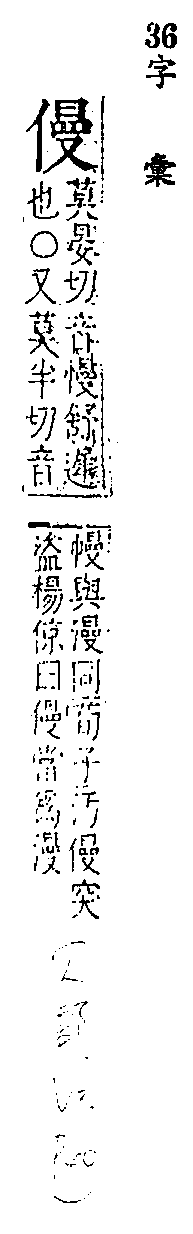 36字彙
僈
莫晏切音慢舒遲
也○又莫半切音
幔與漫同荀子汙僈突
盜楊倞曰僈當爲漫